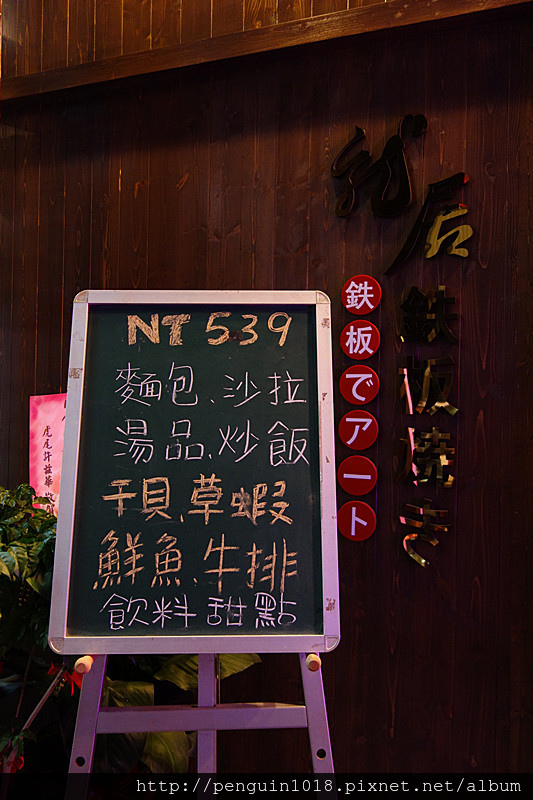 NT 539
麵包、沙拉
湯品、炒飯
干貝、草蝦
鮮魚、牛排
飲料 甜點
居
鉄板焼き
鉄板でアート
http://penguin1018.pixnet.net/album